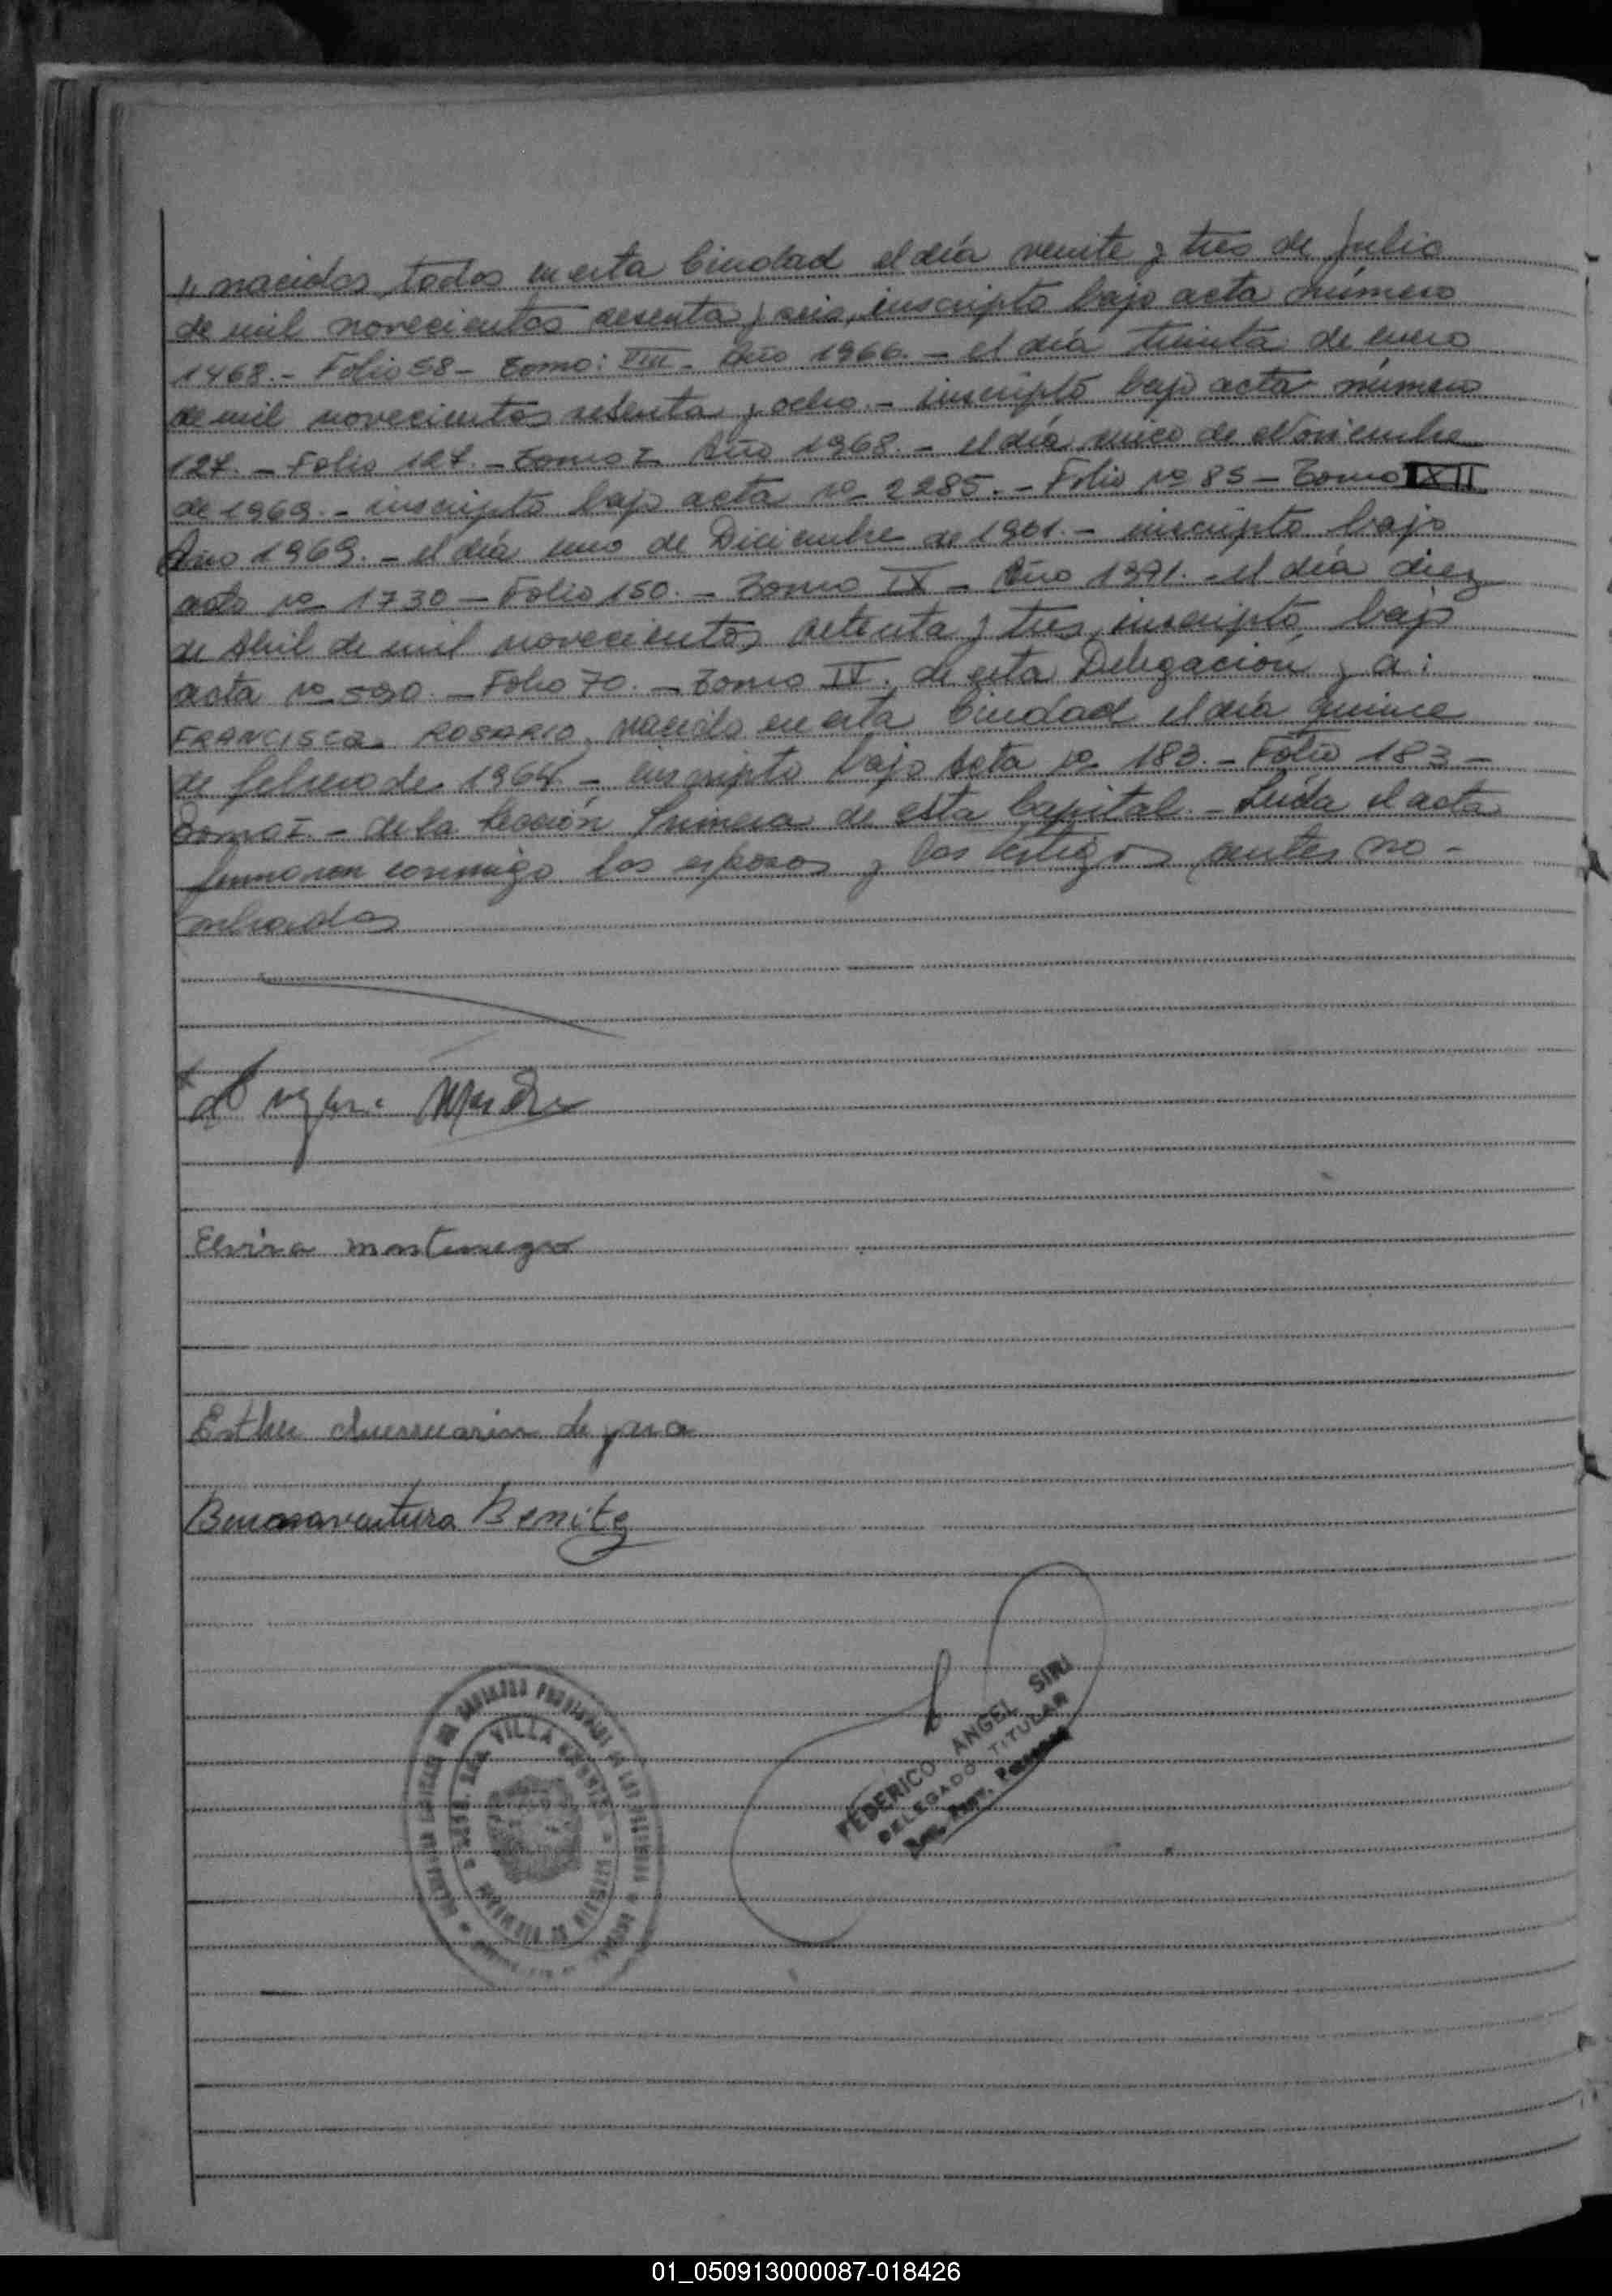 " nacidos todos en esta Ciudad el día veinte y tres de Julio
de mil novecientos sesenta y seis, inscripto bajo acta número
1468.- Folio 58 - Tomo: VIII - Año 1966. - el día treinta de enero
de mil novecientos sesenta y ocho. - inscripto bajo acta número
127. - Folio 127. - Tomo I Año 1968. - el día cinco de Noviembre
de 1969. - inscripto bajo acta nº 2285. - Folio nº 85 - Tomo XII
Año 1969. - el día uno de Diciembre de - inscripto bajo
acta nº 1730 - Folio 150. - Tomo IX - Año 1971. - el día diez
de Abril de mil novecientos setenta y tres, inscripto, bajo
acta nº 590. - Folio 70. - Tomo IV. de esta Delegación y a:
FRANCISCA ROSARIO, nacida en esta Ciudad el día quince
de febrero de 1964 - inscripto bajo Acta nº 183. - Folio 183 -
Tomo I - de la Sección Primera de esta Capital. - Leída el acta
firmaron conmigo los esposos y los testigos antes no-
mbrados
Elvira montenegro
Esther de
Buenaventura Benitez
FEDERICO ANGEL SIRI
DELEGADO TITULAR
Reg. Prov. Personas
VILLA
01_050913000087-018426